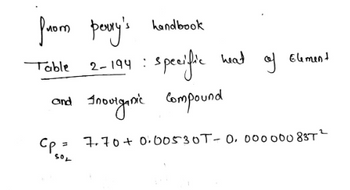 from perry's handbook
Table 2-194 : Specific heat of Element
and Inorganic Compound
Cp SO2 = 7.70 + 0.00530T - 0.00000083T²